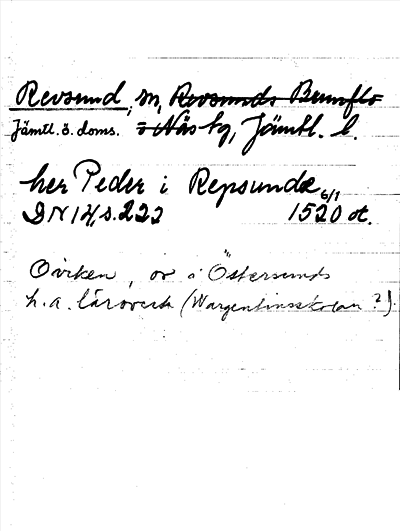 Revsund, sn, Revsunds Brunflo
Jämtl. ö. doms. o Näs tg, Jämtl. l.
her Peder i Repsundæ 6/1
DN 14, s. 222 1520 or.
Ovirken, or i Östersunds
h. a. läroverk (Wargentinsskolan?).